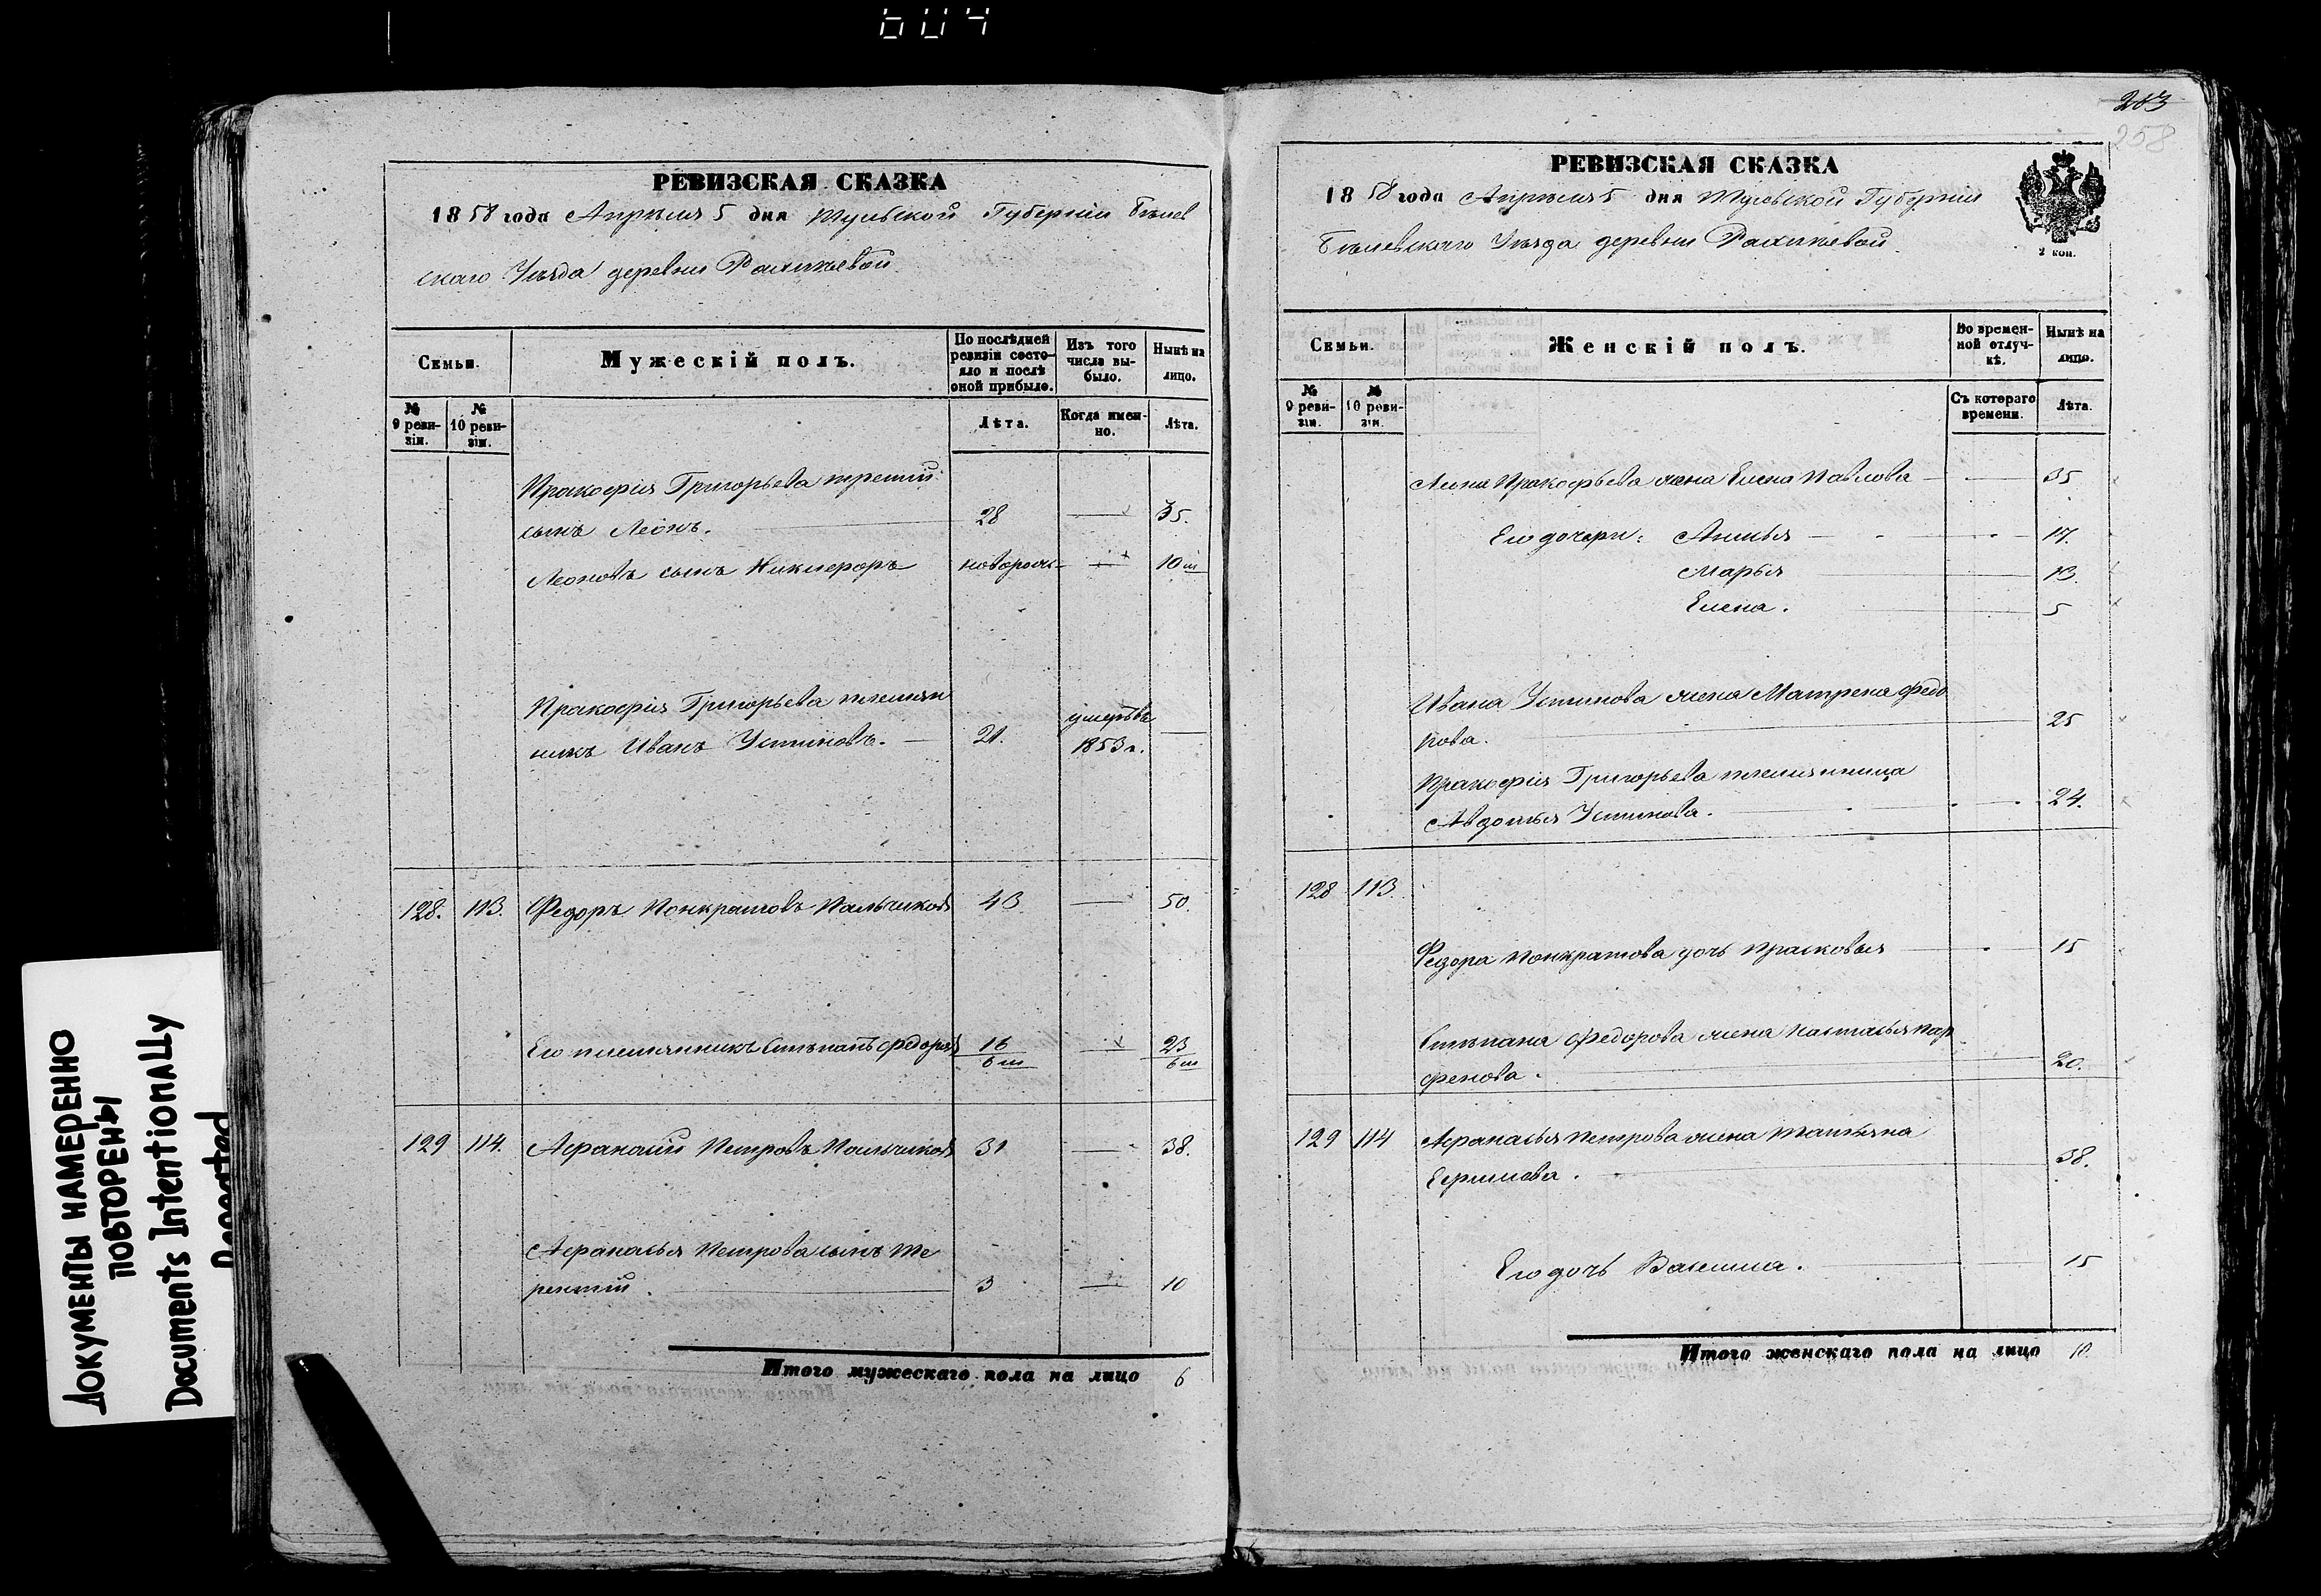 604
ДОКУМЕНТЫ НАМЕРЕННО
ПОВТОРЕНЫ
Documents Intentionally
РЕВИЗСКАЯ СКАЗКА
1858 года Апрѣля 5 дня Тульской Губерніи Бѣлев
скаго Уѣзда деревни
Семьи.
Мужескій полъ.
По послѣдней ревизіи состояло и послѣ оной прибыло.
Изъ того числа выбыло.
Нынѣ на лицо.
№ 9 ревизіи.
№ 10 ревизіи.
Лѣта.
Когда именно.
Лѣта.
Пракофія Григорьева третій
сынъ Леонъ. 28 — 35.
Леоновъ сынъ Никифоръ новорож. — 10 м
Пракофія Григорьева племян
никъ Иванъ Устиновъ. — 21. умеръ въ 1853 г. —
128. 113. Федоръ Понкратовъ Пальчиковъ 43 — 50.
Его племянникъ Степанъ Федоровъ 16 6 м — 23 6 м
129 114. Афанасій Петровъ Пальчиковъ 31 — 38.
Афанасья Петрова сынъ Те
рентій. 3 — 10
Итого мужескаго пола на лицо 6
203
258
РЕВИЗСКАЯ СКАЗКА
1858 года Апрѣля 5 дня Тульской Губерніи
Бѣлевскаго Уѣзда деревни
2 коп.
Семьи.
Женскій полъ.
Во временной отлучкѣ.
Нынѣ на лицо.
№ 9 ревизіи.
№ 10 ревизіи.
Съ котораго времени.
Лѣта.
Пракофьева жена Елена Павлова — 35
Его дочери: Анисья — 17.
Марья 13.
Елена. 5
Ивана Устинова жена Матрена Федо
рова. 25
Пракофія Григорьева племянница
Авдотья Устинова. 24.
128 113.
Федора Понкратова дочь Прасковья 15
Степана Федорова жена Настасья Пар
фенова. 20.
129 114 Афанасья Петрова жена Татьяна
Ефимова. 38.
Его дочь Василиса. 15
Итого женскаго пола на лицо 10.